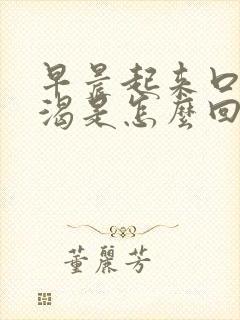 早晨起来口
渴是怎麽回
董麗芳